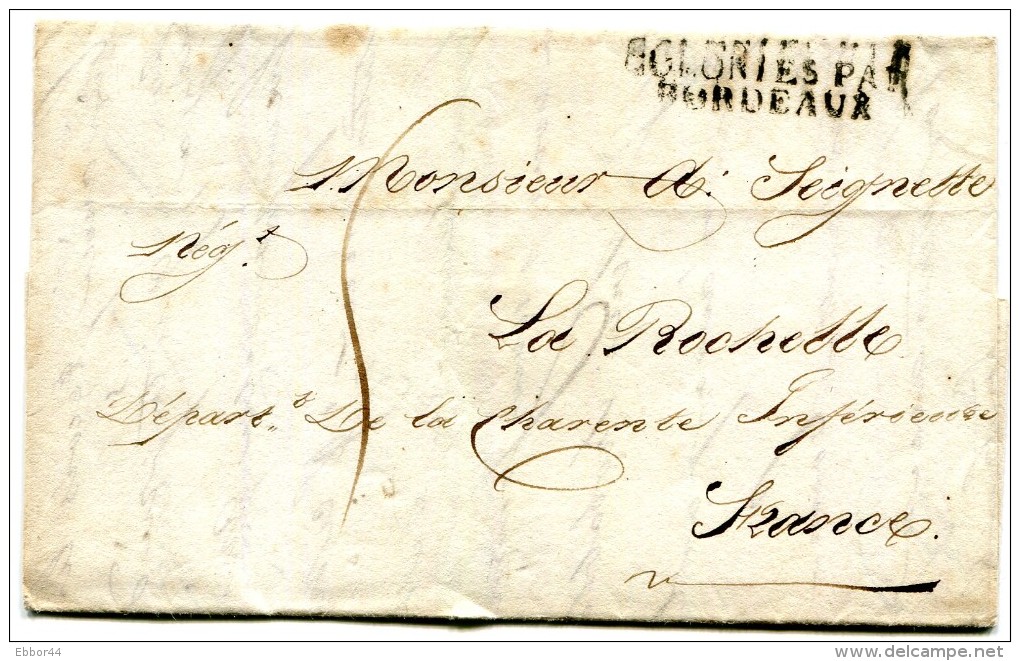 COLONIES PAR
BORDEAUX
Monsieur A. Seignette
Nég.t
La Rochelle
Départ.t De la Charente Inférieure
France.
Ebbor44
delcampe.net